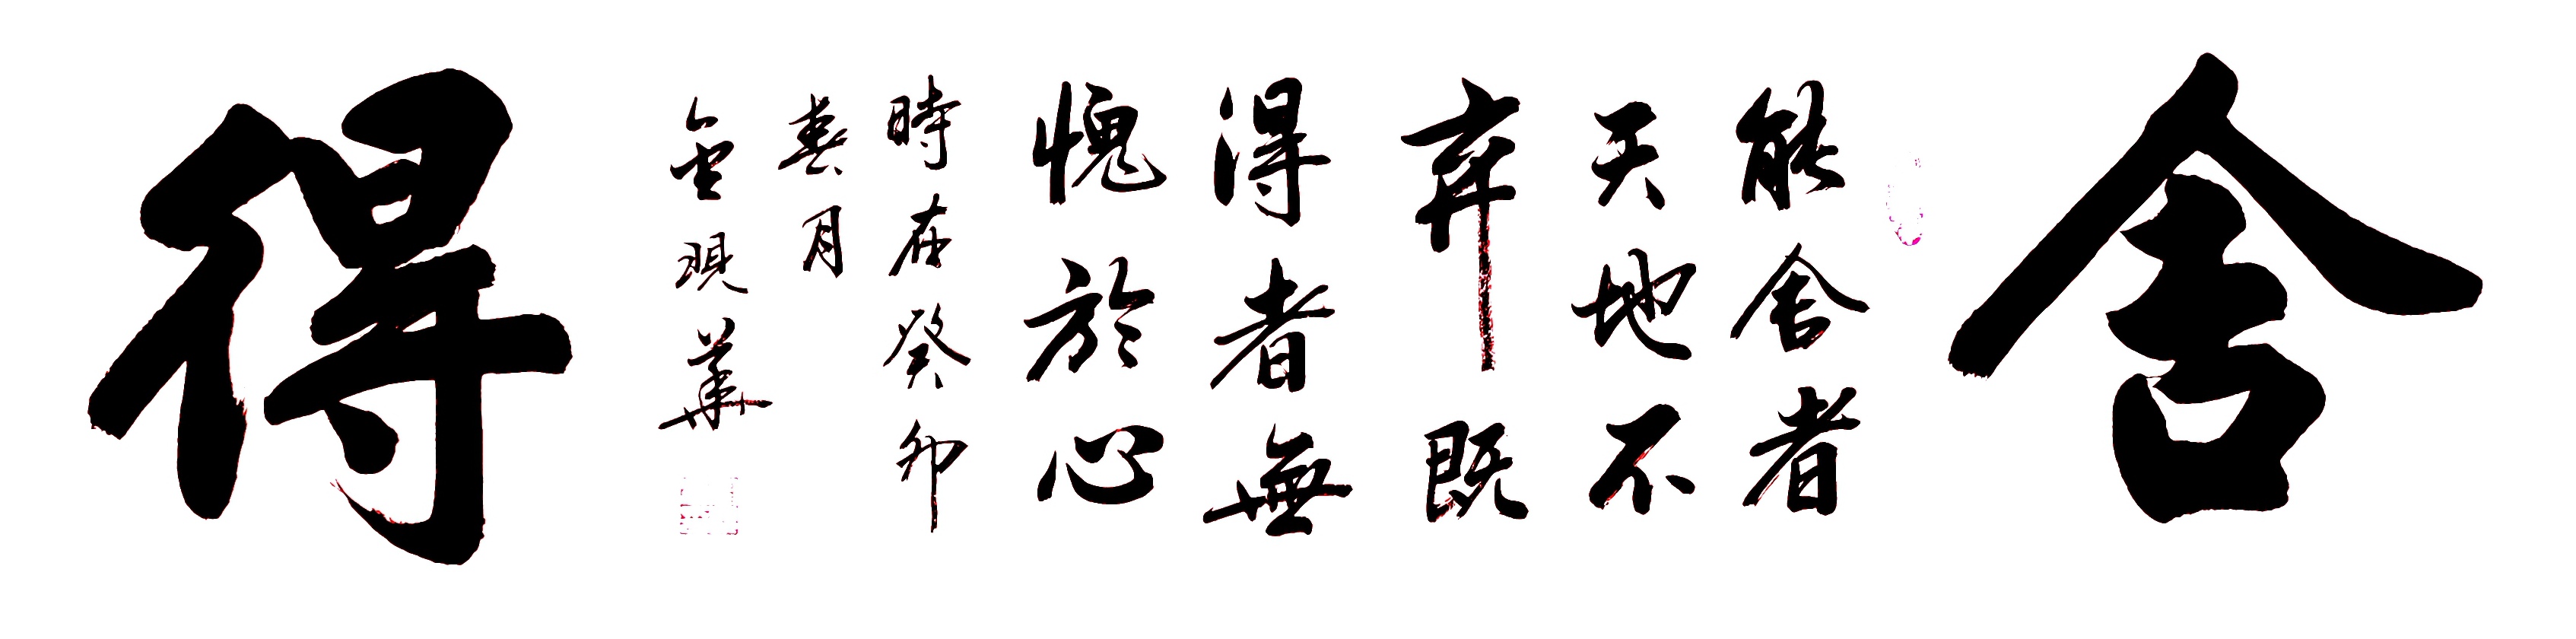 舍
能舍者
天地不
弃既
得者無
愧於心
時在癸卯
春月
金現華
得